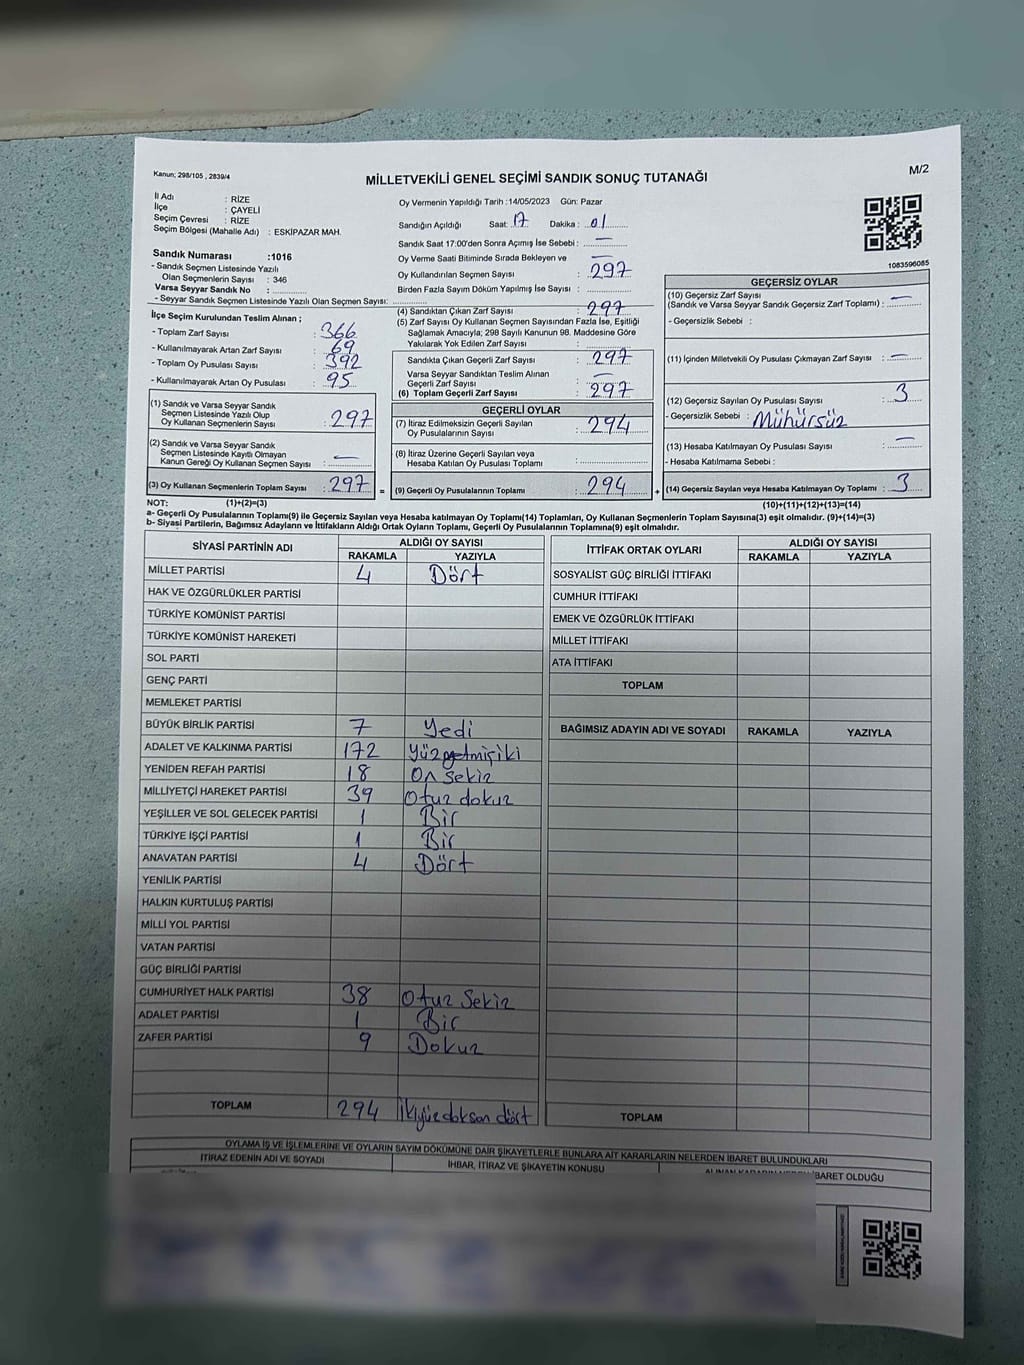 Kanun; 298/105 , 2839/4
MİLLETVEKİLİ GENEL SEÇİMİ SANDIK SONUÇ TUTANAĞI
M/2
İl Adı : RİZE
İlçe : ÇAYELİ
Seçim Çevresi : RİZE
Seçim Bölgesi (Mahalle Adı) : ESKİPAZAR MAH.
Sandık Numarası :1016
- Sandık Seçmen Listesinde Yazılı
Olan Seçmenlerin Sayısı : 346
Varsa Seyyar Sandık No :
- Seyyar Sandık Seçmen Listesinde Yazılı Olan Seçmen Sayısı:
Oy Vermenin Yapıldığı Tarih :14/05/2023 Gün: Pazar
Sandığın Açıldığı Saat: 17 Dakika : 01
Sandık Saat 17:00'den Sonra Açımış İse Sebebi : —
Oy Verme Saati Bitiminde Sırada Bekleyen ve —
Oy Kullandırılan Seçmen Sayısı : 297
Birden Fazla Sayım Döküm Yapılmış İse Sayısı :
1083596085
İlçe Seçim Kurulundan Teslim Alınan ;
- Toplam Zarf Sayısı : 366
- Kullanılmayarak Artan Zarf Sayısı : 69
- Toplam Oy Pusulası Sayısı : 392
- Kullanılmayarak Artan Oy Pusulası : 95
(1) Sandık ve Varsa Seyyar Sandık
Seçmen Listesinde Yazılı Olup
Oy Kullanan Seçmenlerin Sayısı : 297
(2) Sandık ve Varsa Seyyar Sandık
Seçmen Listesinde Kayıtlı Olmayan
Kanun Gereği Oy Kullanan Seçmen Sayısı : —
(3) Oy Kullanan Seçmenlerin Toplam Sayısı : 297 =
(4) Sandıktan Çıkan Zarf Sayısı : 297
(5) Zarf Sayısı Oy Kullanan Seçmen Sayısından Fazla İse, Eşitliği
Sağlamak Amacıyla; 298 Sayılı Kanunun 98. Maddesine Göre
Yakılarak Yok Edilen Zarf Sayısı :
Sandıkta Çıkan Geçerli Zarf Sayısı : 297
Varsa Seyyar Sandıktan Teslim Alınan
Geçerli Zarf Sayısı : —
(6) Toplam Geçerli Zarf Sayısı : 297
GEÇERLİ OYLAR
(7) İtiraz Edilmeksizin Geçerli Sayılan
Oy Pusulalarının Sayısı : 294
(8) İtiraz Üzerine Geçerli Sayılan veya
Hesaba Katılan Oy Pusulası Toplamı :
(9) Geçerli Oy Pusulalarının Toplamı : 294 +
GEÇERSİZ OYLAR
(10) Geçersiz Zarf Sayısı
(Sandık ve Varsa Seyyar Sandık Geçersiz Zarf Toplamı) : —
- Geçersizlik Sebebi :
(11) İçinden Milletvekili Oy Pusulası Çıkmayan Zarf Sayısı : —
(12) Geçersiz Sayılan Oy Pusulası Sayısı : 3
- Geçersizlik Sebebi : Mühürsüz
(13) Hesaba Katılmayan Oy Pusulası Sayısı : —
- Hesaba Katılmama Sebebi :
(14) Geçersiz Sayılan veya Hesaba Katılmayan Oy Toplamı : 3
NOT: (1)+(2)=(3) (10)+(11)+(12)+(13)=(14)
a- Geçerli Oy Pusulalarının Toplamı(9) ile Geçersiz Sayılan veya Hesaba katılmayan Oy Toplamı(14) Toplamları, Oy Kullanan Seçmenlerin Toplam Sayısına(3) eşit olmalıdır. (9)+(14)=(3)
b- Siyasi Partilerin, Bağımsız Adayların ve İttifakların Aldığı Ortak Oyların Toplamı, Geçerli Oy Pusulalarının Toplamına(9) eşit olmalıdır.
SİYASİ PARTİNİN ADI ALDIĞI OY SAYISI
RAKAMLA YAZIYLA
MİLLET PARTİSİ 4 Dört
HAK VE ÖZGÜRLÜKLER PARTİSİ
TÜRKİYE KOMÜNİST PARTİSİ
TÜRKİYE KOMÜNİST HAREKETİ
SOL PARTİ
GENÇ PARTİ
MEMLEKET PARTİSİ
BÜYÜK BİRLİK PARTİSİ 7 Yedi
ADALET VE KALKINMA PARTİSİ 172 Yüzyetmişiki
YENİDEN REFAH PARTİSİ 18 On Sekiz
MİLLİYETÇİ HAREKET PARTİSİ 39 Otuz dokuz
YEŞİLLER VE SOL GELECEK PARTİSİ 1 Bir
TÜRKİYE İŞÇİ PARTİSİ 1 Bir
ANAVATAN PARTİSİ 4 Dört
YENİLİK PARTİSİ
HALKIN KURTULUŞ PARTİSİ
MİLLİ YOL PARTİSİ
VATAN PARTİSİ
GÜÇ BİRLİĞİ PARTİSİ
CUMHURİYET HALK PARTİSİ 38 Otuz Sekiz
ADALET PARTİSİ 1 Bir
ZAFER PARTİSİ 9 Dokuz
TOPLAM 294 İkiyüzdoksan dört
İTTİFAK ORTAK OYLARI ALDIĞI OY SAYISI
RAKAMLA YAZIYLA
SOSYALİST GÜÇ BİRLİĞİ İTTİFAKI
CUMHUR İTTİFAKI
EMEK VE ÖZGÜRLÜK İTTİFAKI
MİLLET İTTİFAKI
ATA İTTİFAKI
TOPLAM
BAĞIMSIZ ADAYIN ADI VE SOYADI RAKAMLA YAZIYLA
TOPLAM
OYLAMA İŞ VE İŞLEMLERİNE VE OYLARIN SAYIM DÖKÜMÜNE DAİR ŞİKAYETLERLE BUNLARA AİT KARARLARIN NELERDEN İBARET BULUNDUKLARI
İTİRAZ EDENİN ADI VE SOYADI İHBAR, İTİRAZ VE ŞİKAYETİN KONUSU İBARET OLDUĞU